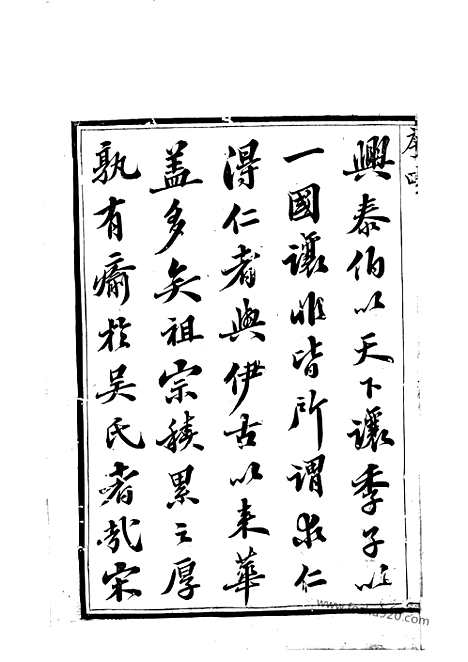 序四
興泰伯以天下讓季子以
一國讓非皆所謂求仁
得仁者與伊古以來華
盖多矣祖宗積累之厚
孰有瘉於吳氏者哉宋